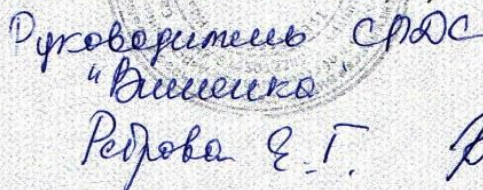 Руководитель СПДС
"Вишенка"
Реброва Е.Г.